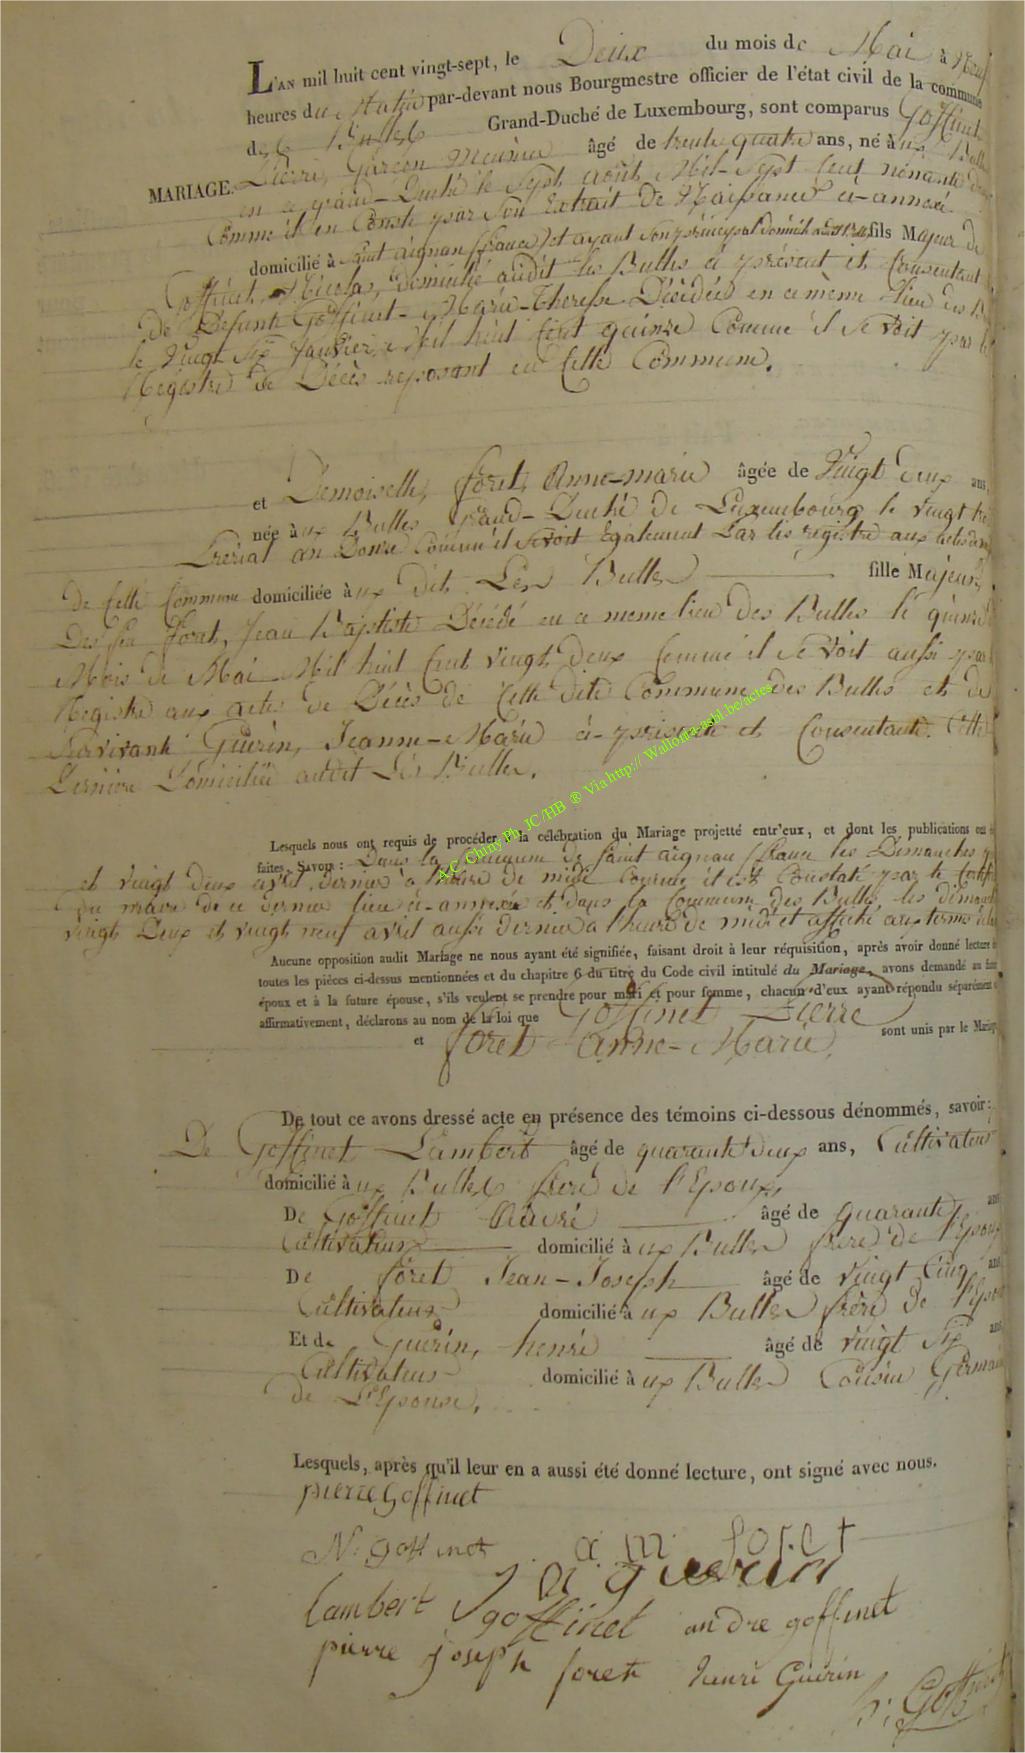 L'AN mil huit cent vingt-sept, le Deux du mois de Mai à Neuf
heures du Matin par-devant nous Bourgmestre officier de l'état civil de la commune
des Bulles Grand-Duché de Luxembourg, sont comparus Goffinet
MARIAGE. Pierre, Garçon Meunier âgé de trente quatre ans, né à ux Bulles
en ce grand-Duché le Sept août Mil-Sept Cent nénante deux
Comme il en Conste par Son Extrait de Naissance ci-annexé
domicilié à Saint aignan (france) et ayant Son principal Domicile fils Majeur de
Goffinet, Nicolas, Domicilié audit les Bulles à présent et Consentant
de Defunte Goffinet-Marie-Therese Décédée en ce même lieu des B
le Vingt Six Janvier Mil huit Cent quinze Comme il Se voit par le
Registre de Décès reposant en Cette Commune.
et Demoiselle, foret, Anne-marie âgée de Vingt deux ans,
née à ux Bulles Grand-Duché de Luxembourg le vingt
Prérial an Douze Comme il Sevoit Egalement Par les registre aux
De Cette Commune domiciliée à ux dits Les Bulles fille Majeure
Des feu foret, Jean Baptiste Décédé en ce meme lieu des Bulles le quinze
Mois de Mai Mil huit Cent vingt deux Comme il Se voit aussi par
Registre aux actes de Décès de Cette dite Commune des Bulles et de
Survivante Guérin, Jeanne-Marie à-présente et Consentante. Cette
Derniere Domiciliée audit Les Bulles.
Lesquels nous ont requis de procéder à la célébration du Mariage projetté entr'eux, et dont les publications ont
faites, Savoir : Dans la Commune de Saint aignan (france les Dimanches
et vingt deux avril dernier a l'heure de midi Comme il est Constaté par le Certif
du maire de ce dernier lieu ci-annexé et dans la Commune des Bulles les dimanches
vingt Deux et vingt neuf avril aussi dernier a l'heure de midi et affiché aux terms
Aucune opposition audit Mariage ne nous ayant été signifiée, faisant droit à leur réquisition, après avoir donné lecture
toutes les pièces ci-dessus mentionnées et du chapitre 6 du titre du Code civil intitulé du Mariage, avons demandé au futur
époux et à la future épouse, s'ils veulent se prendre pour mari et pour femme, chacun d'eux ayant répondu séparément
affirmativement, déclarons au nom de la loi que Goffinet Pierre
et foret Anne-Marie, sont unis par le Mariage
De tout ce avons dressé acte en présence des témoins ci-dessous dénommés, savoir:
De Goffinet Lambert âgé de quarante deux ans, Cultivateur
domicilié à ux Bulles frere de l'Epoux,
De Goffinet André âgé de quarante ans
Cultivateur domicilié à ux Bulles frere de l'Epoux
De foret Jean-Joseph âgé de vingt Cinq ans
Cultivateur domicilié à ux Bulles frère de l'Epouse
Et de Guérin, henri âgé de vingt Six ans
Cultivateur domicilié à ux Bulles Cousin Germain
de L'Epouse.
Lesquels, après qu'il leur en a aussi été donné lecture, ont signé avec nous.
pierre Goffinet
N. goffinet a. m. foret
guerin
Lambert J goffinet andre goffinet
pierre joseph foret henri Guérin
A.C. Chiny Ph. JC/HB ® Via http:// Wallonia-asbl.be/actes